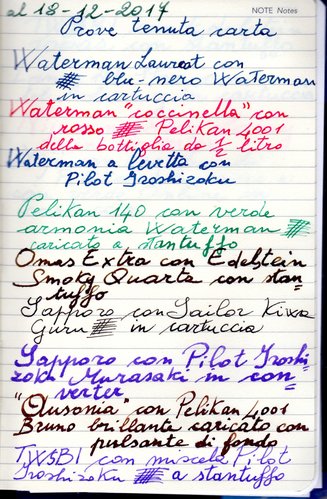 al 18-12-2017
NOTE Notes
Prove tenuta carta
Waterman Laureat con
blu-nero Waterman
in cartuccia
Waterman "coccinella" con
rosso Pelikan 4001
della bottiglia da 1/2 litro
Waterman a levetta con
Pilot Iroshizoku
Pelikan 140 con verde
armonia Waterman
caricato a stantuffo
Omas Extra con Edelstein
Smoky Quartz con stan-
tuffo
Sapporo con Sailor Kiwa
Guro in cartuccia
Sapporo con Pilot Iroshi-
zoku Murasaki in con-
verter
"Ausonia" con Pelikan 4001
Bruno brillante caricato con
pulsante di fondo
TWSBI con miscela Pilot
Iroshizoku a stantuffo